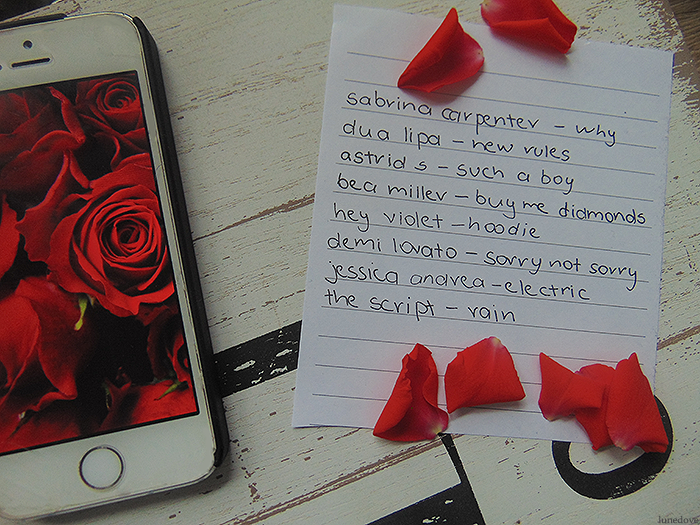 sabrina carpenter – why
dua lipa – new rules
astrid s – such a boy
bea miller – buy me diamonds
hey violet – hoodie
demi lovato – sorry not sorry
jessica andrea – electric
the script – rain